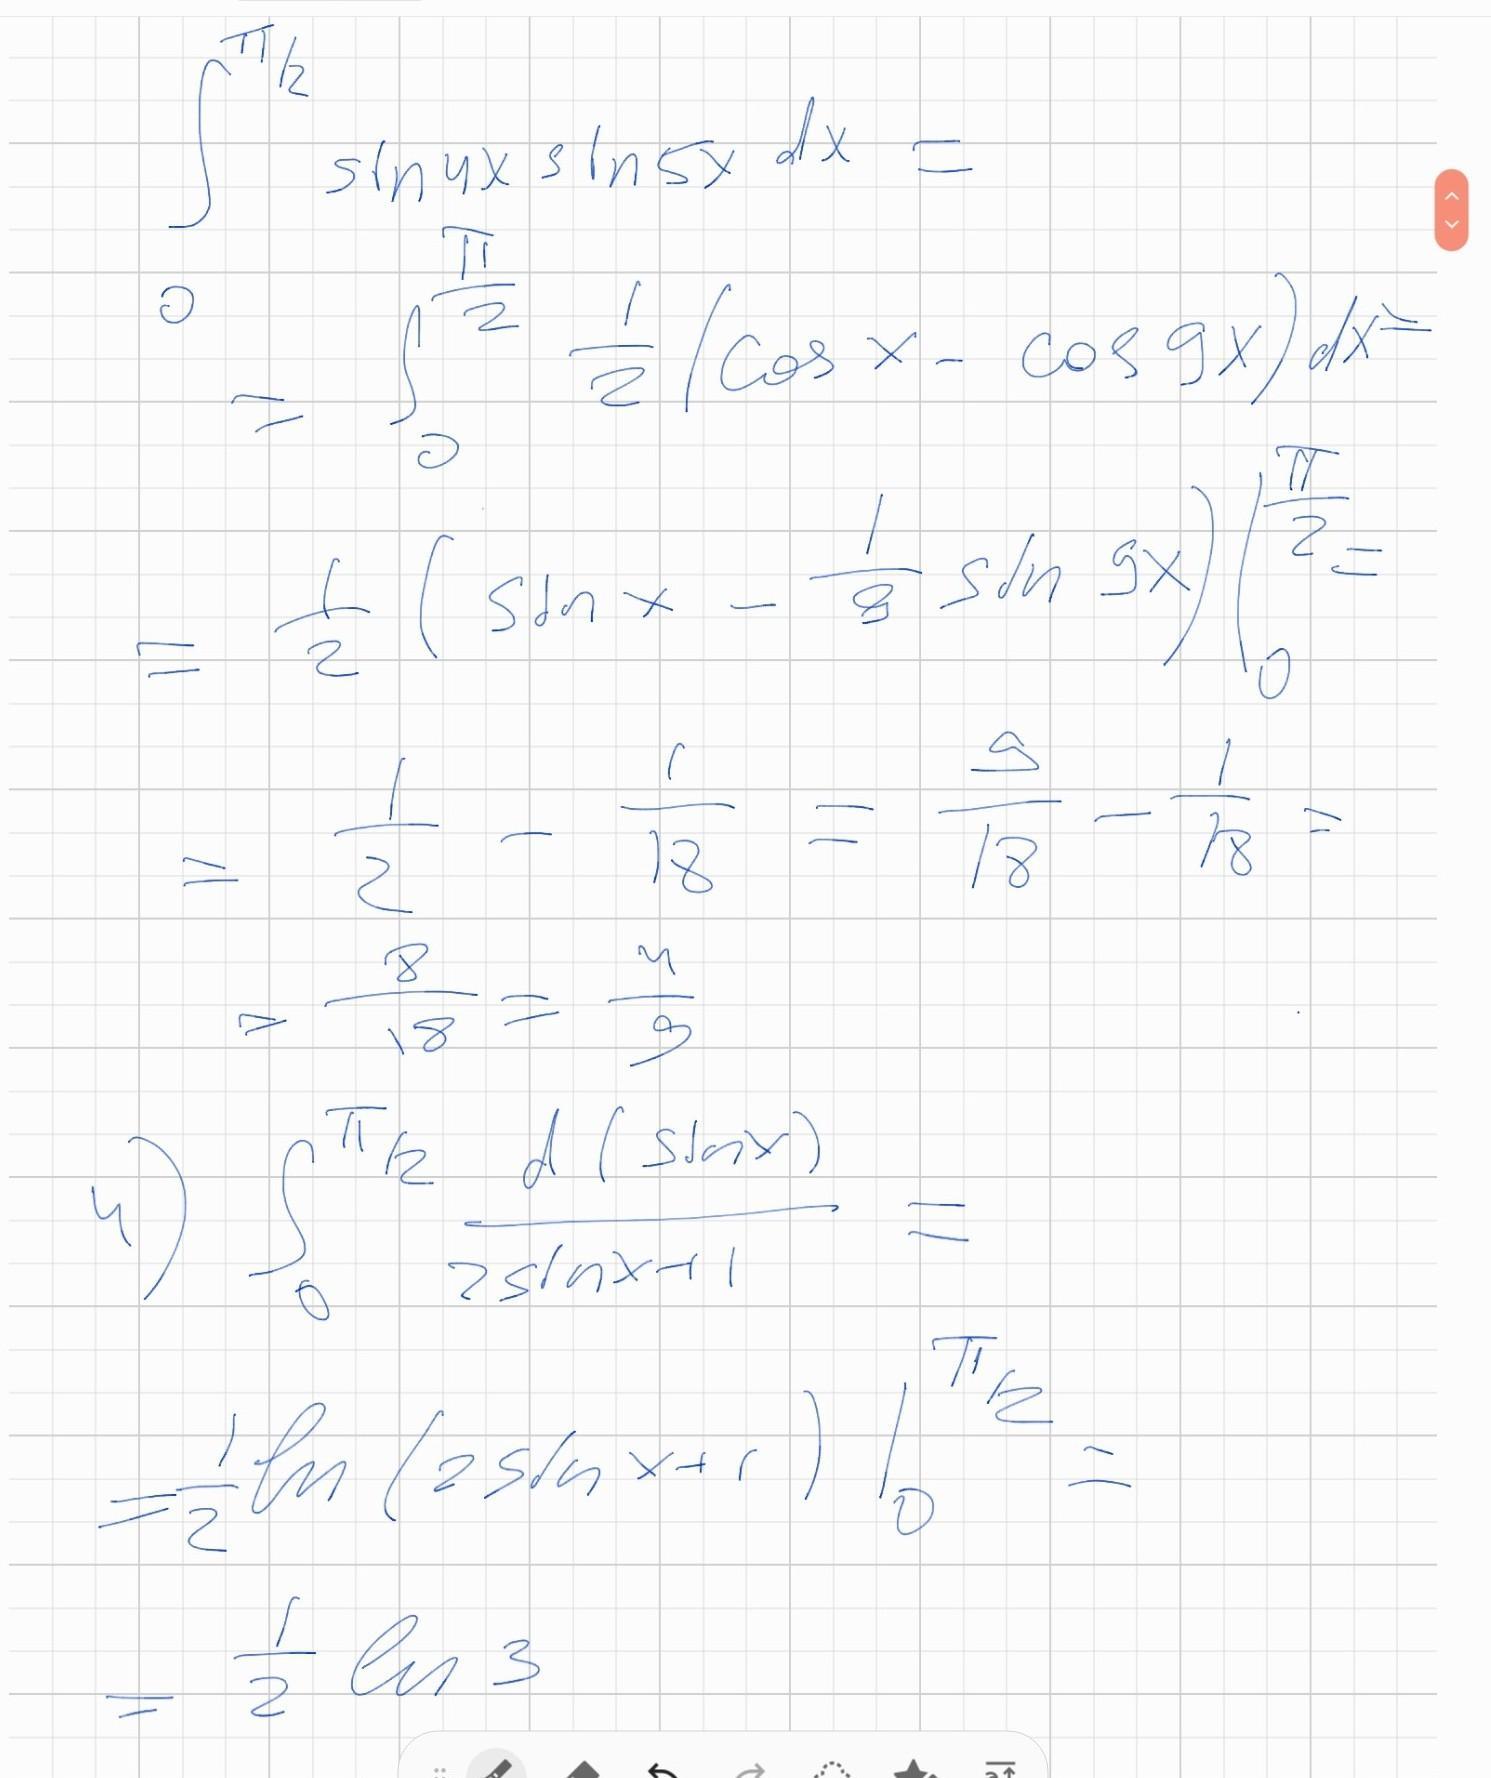 ∫₀^{π/2} sin4x sin5x dx =
= ∫₀^{π/2} 1/2 (cos x - cos 9x) dx =
= 1/2 (sin x - 1/9 sin 9x) |₀^{π/2} =
= 1/2 - 1/18 = 9/18 - 1/18 =
= 8/18 = 4/9
4) ∫₀^{π/2} d(sinx)/(2sinx+1) =
= 1/2 ln (2sin x+1) |₀^{π/2} =
= 1/2 ln 3